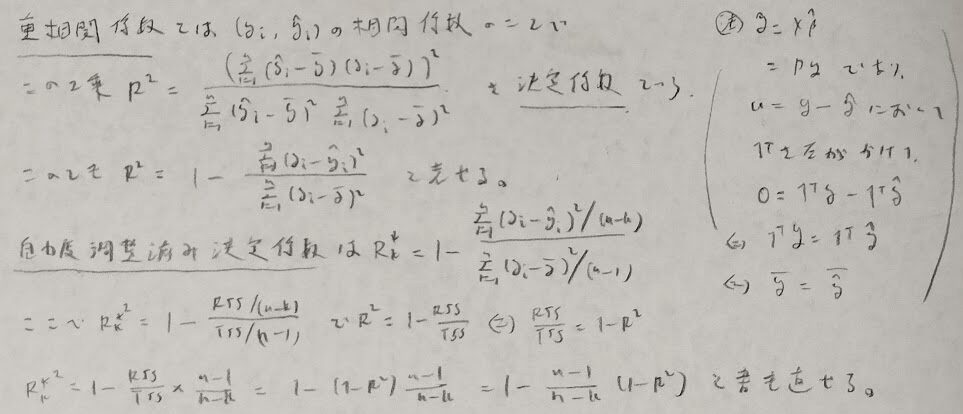 重相関係数とは (yᵢ, ŷᵢ) の相関係数のことで
この2乗 R² = (Σⁿᵢ₌₁ (ŷᵢ - ȳ)(yᵢ - ȳ))² / Σⁿᵢ₌₁ (ŷᵢ - ȳ)² Σⁿᵢ₌₁ (yᵢ - ȳ)² を 決定係数 という.
このとき R² = 1 - Σⁿᵢ₌₁ (yᵢ - ŷᵢ)² / Σⁿᵢ₌₁ (yᵢ - ȳ)² と表せる。
自由度調整済み決定係数は R*ₖ² = 1 - Σⁿᵢ₌₁ (yᵢ - ŷᵢ)²/(n-k) / Σⁿᵢ₌₁ (yᵢ - ȳ)²/(n-1)
ここで R*ₖ² = 1 - RSS/(n-k) / TSS/(n-1) で R² = 1 - RSS/TSS ⇔ RSS/TSS = 1 - R²
R*ₖ² = 1 - RSS/TSS × (n-1)/(n-k) = 1 - (1-R²) (n-1)/(n-k) = 1 - (n-1)/(n-k) (1-R²) と書き直せる。
ŷ = Xβ̂
= Py であり.
u = y - ŷ において
1ᵀを左からかけて.
0 = 1ᵀy - 1ᵀŷ
⇔ 1ᵀy = 1ᵀŷ
⇔ ȳ = ŷ̄